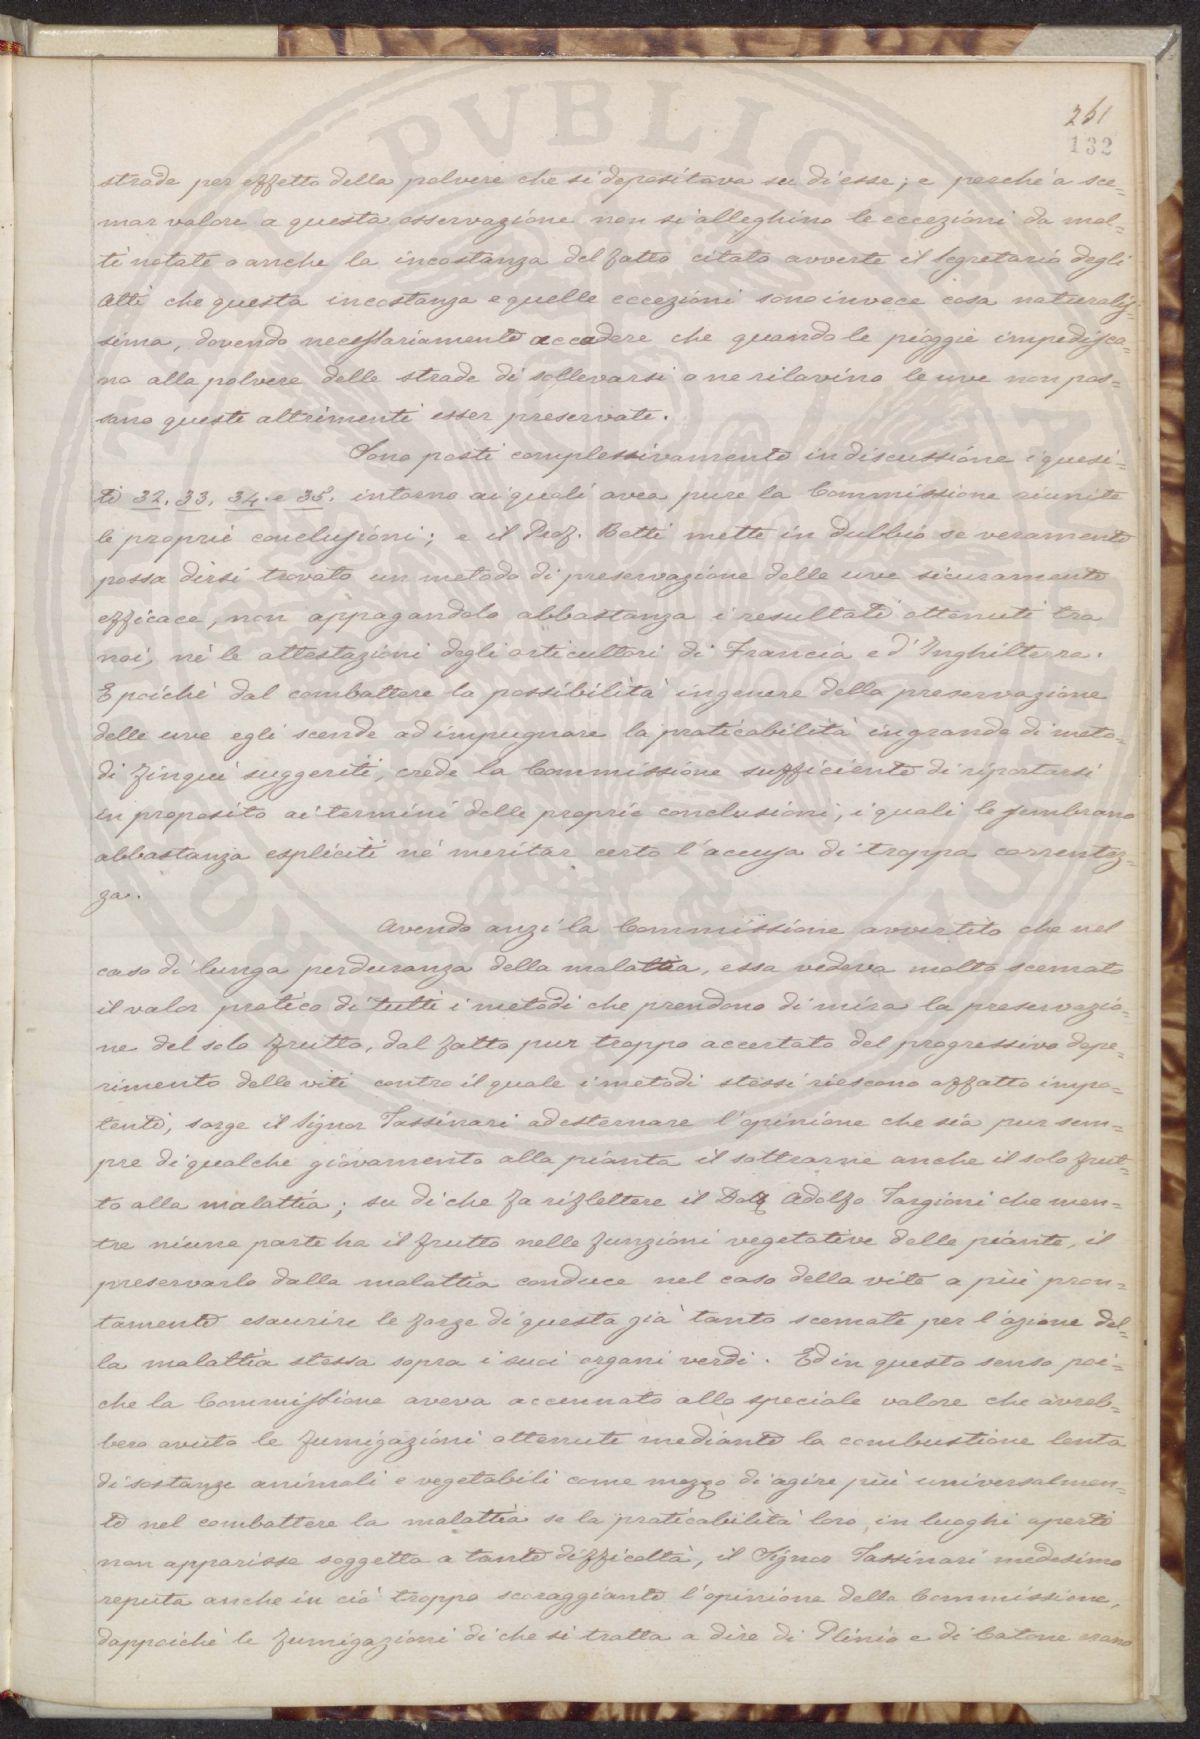 261
132
strade per effetto della polvere che si depositava su di esse; e perchè a sce=
mar valore a questa osservazione non si alleghino le eccezioni da mol=
ti notate o anche la incostanza del fatto citato avverte il Segretario degli
Atti che questa incostanza e quelle eccezioni sono invece cosa naturalis=
sima, dovendo necessariamente accadere che quando le pioggie impedisca=
no alla polvere delle strade di sollevarsi o ne rilavino le uve non pos=
sano queste altrimenti esser preservate.
Sono posti complessivamente in discussione i quesi=
ti 32, 33, 34. e 35. intorno ai quali avea pure la Commissione riunite
le proprie conclusioni; e il Prof. Betti mette in dubbio se veramente
possa dirsi trovato un metodo di preservazione delle uve sicuramente
efficace, non appagandolo abbastanza i resultati ottenuti tra
noi, nè le attestazioni degli orticultori di Francia e d'Inghilterra.
E poichè dal combattere la possibilità in genere della preservazione
delle uve egli scende ad impugnare la praticabilità in grande di meto=
di finqui suggeriti, crede la Commissione sufficiente di riportarsi
in proposito ai termini delle proprie conclusioni, i quali le sembrano
abbastanza espliciti nè meritar certo l'accusa di troppa correntez=
za.
Avendo anzi la Commissione avvertito che nel
caso di lunga perduranza della malattia, essa vedeva molto scemato
il valor pratico di tutti i metodi che prendono di mira la preservazio=
ne del solo frutto, dal fatto pur troppo accertato del progressivo depe=
rimento delle viti contro il quale i metodi stessi riescono affatto impo=
tenti, sorge il Signor Tassinari ad esternare l'opinione che sia pur sem=
pre di qualche giovamento alla pianta il sottrarne anche il solo frut=
to alla malattia; su di che fa riflettere il Dott. Adolfo Targioni che men=
tre niuna parte ha il frutto nelle funzioni vegetative delle piante, il
preservarlo dalla malattia conduce nel caso della vite a più pron=
tamente esaurire le forze di questa già tanto scemate per l'azione del=
la malattia stessa sopra i suoi organi verdi. Ed in questo senso poi=
che la Commissione aveva accennato allo speciale valore che avreb=
bero avuto le fumigazioni ottenute mediante la combustione lenta
di sostanze animali e vegetabili come mezzo di agire più universalmen=
te nel combattere la malattia se la praticabilità loro in luoghi aperti
non apparisse soggetta a tante difficoltà, il Signor Tassinari medesimo
reputa anche in ciò troppo scoraggiante l'opinione della Commissione,
dappoichè le fumigazioni di che si tratta a dire di Plinio e di Catone erano